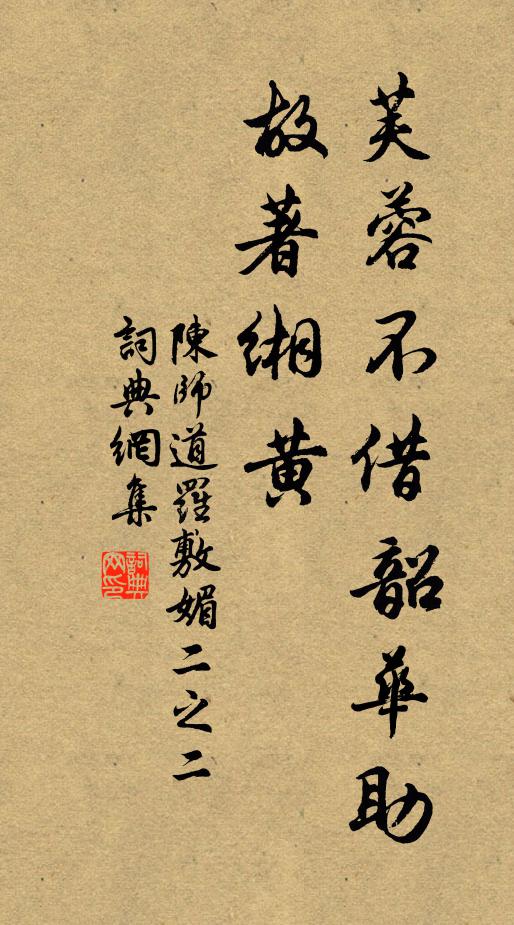 芙蓉不借韶華助
故著緗黄
陳師道羅敷媚二之二
詞典網集
詞典網印